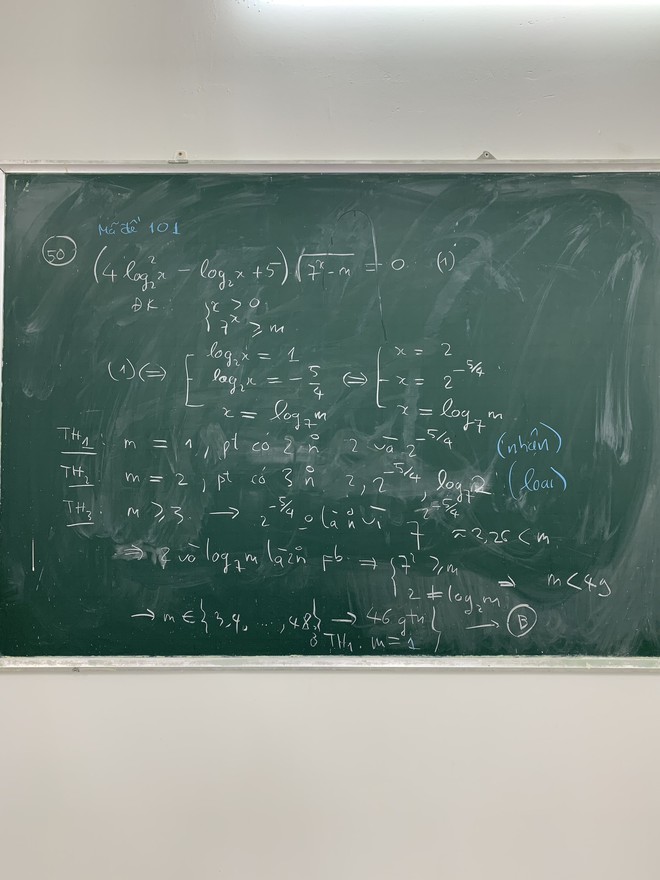 Mã đề 101
50 (4 log₂²x − log₂x + 5) √(7ˣ − m) = 0 (1)
ĐK: { x > 0
7ˣ ≥ m
(1) ⇔ [ log₂x = 1 ⇔ [ x = 2
log₂x = −5/4 x = 2^(−5/4)
x = log₇m x = log₇m
TH₁: m = 1, pt có 2 n⁰ 2 và 2^(−5/4) (nhân)
TH₂: m = 2, pt có 3 n⁰ 2, 2^(−5/4), log₇2 (loại)
TH₃: m ≥ 3 → 2^(−5/4) o là n vì 7^(2^(−5/4)) ≈ 2,26 < m
⇒ 2 và log₇m là 2n⁰ pb ⇒ { 7² ≥ m
2 ≠ log₂m ⇒ m < 49
→ m ∈ {3,4, ..., 48} → 46 gtn
TH₁. m = 1 → B